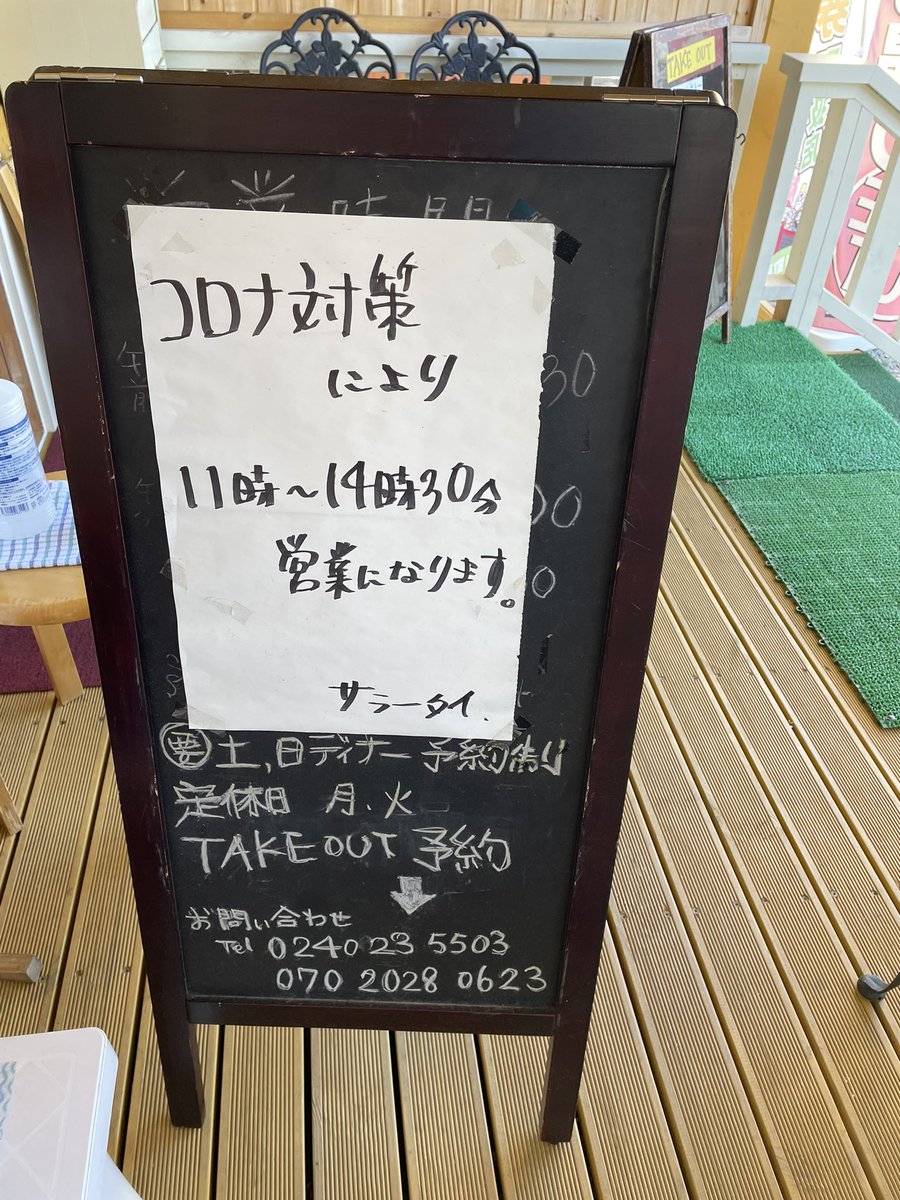 TAKE OUT
営業時間
コロナ対策
により
11時〜14時30分
営業になります。
サラータイ.
㊐土,日ディナー 予約制り
定休日 月.火
TAKE OUT 予約
お問い合わせ
Tel 0240 23 5503
070 2028 0623